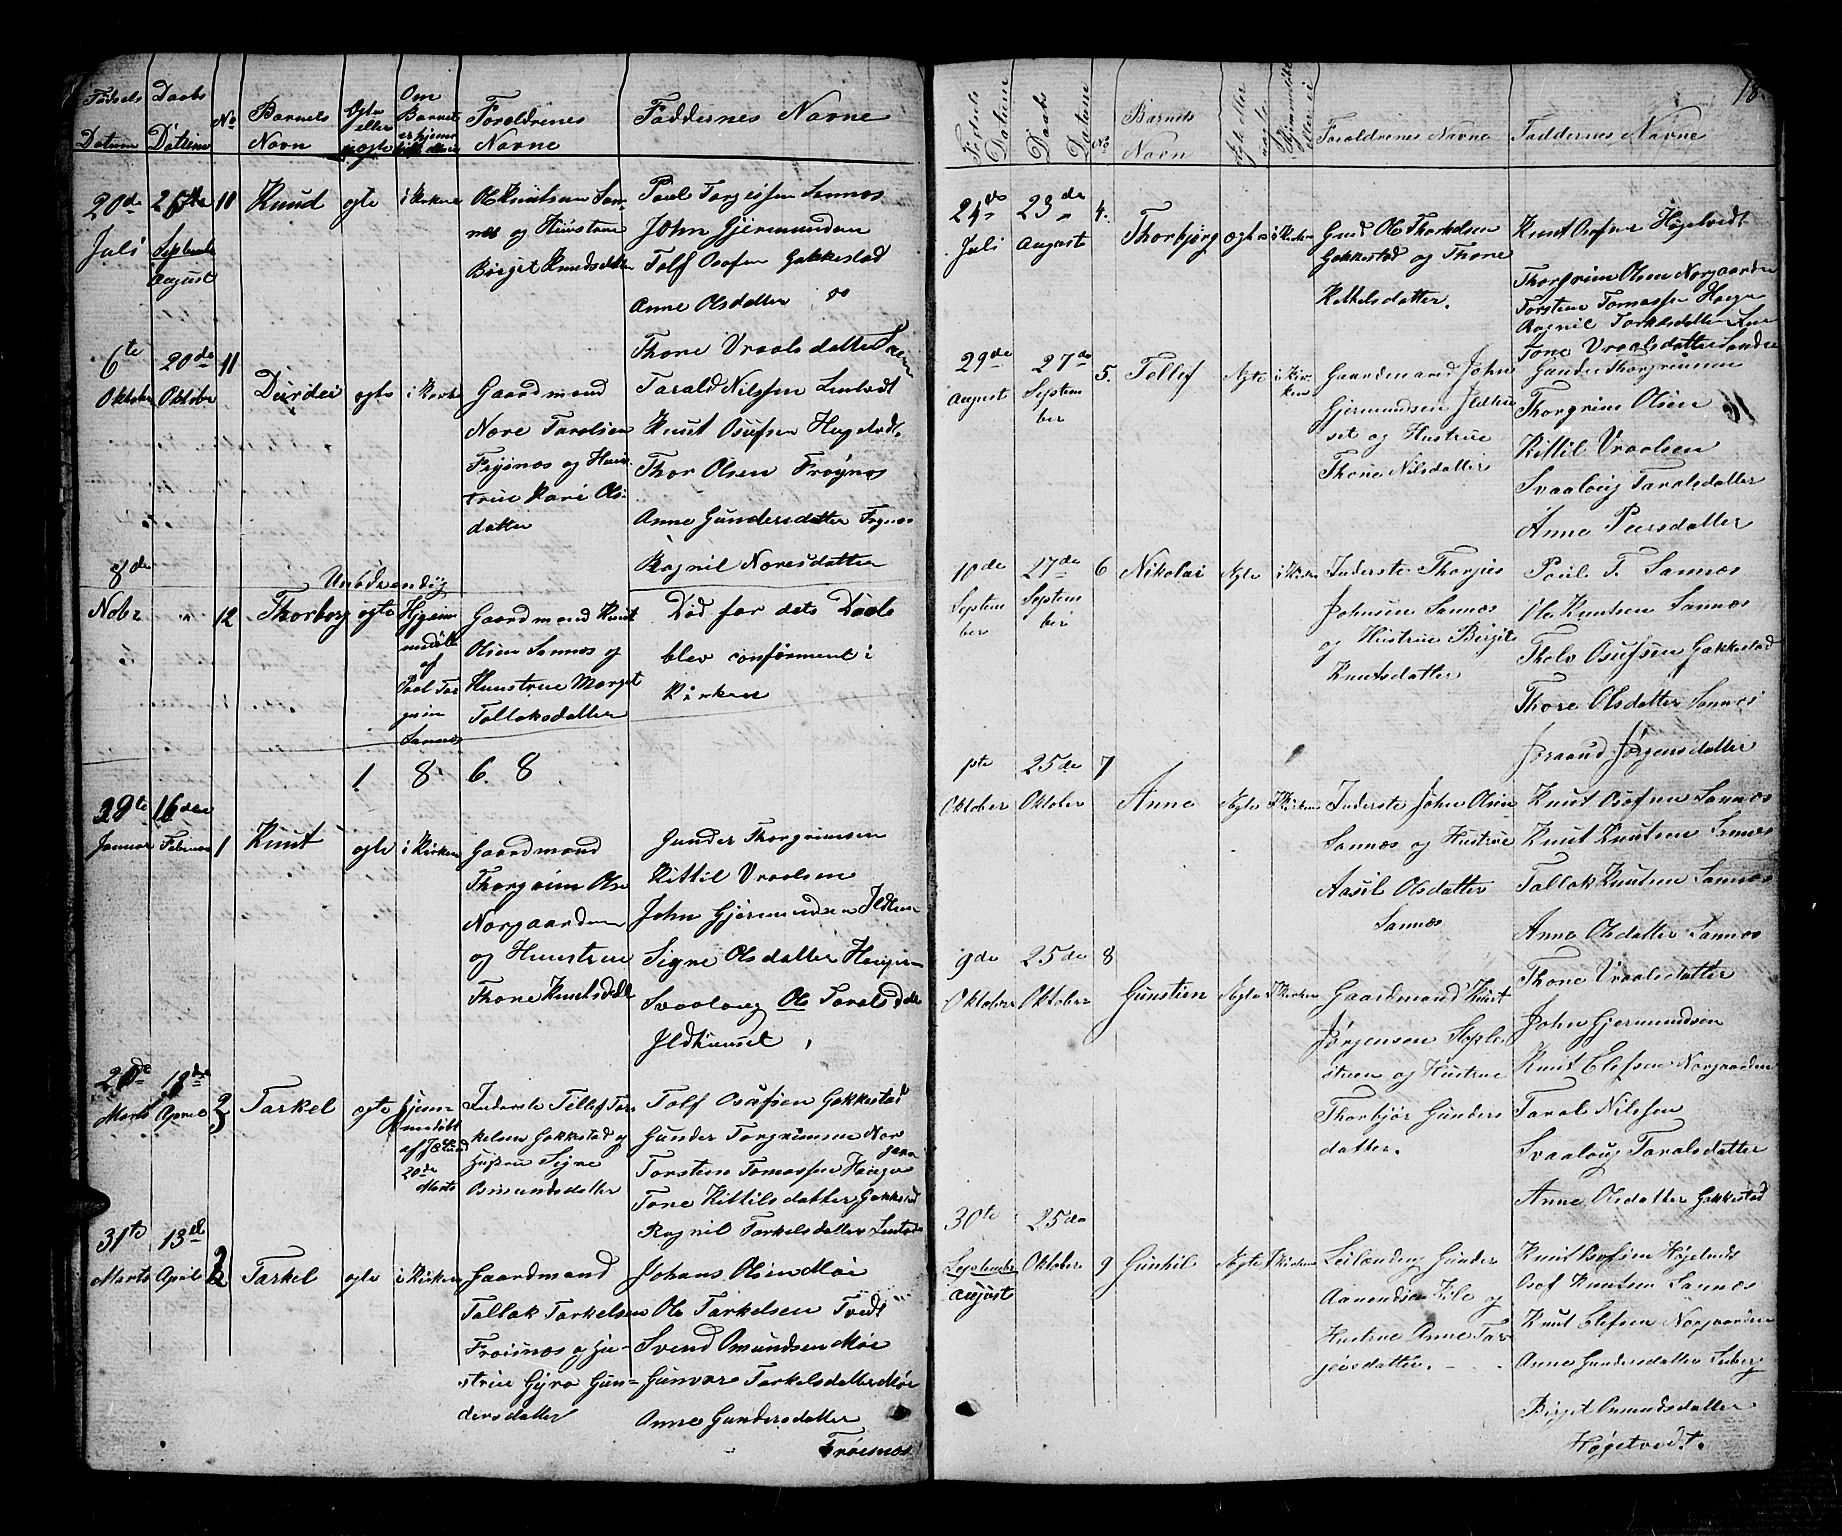 Fødsels Datum
Daabs Datum
No
Barnets Navn
Ogte eller uogte
Om Barnet er hjemmedøbt eller ei
Foroldrenes Navne
Faddernes Navne
20de Juli
September August
Knud
ogte
i kirken
Ole Knutsen San-
nes og Huustrue
Børget Knudsdatter
Poul Torgeissen Sannæs
John Gjermundsen
Tolf Osofsen Gakkestad
Anne Olsdatter
Thone Vraalsdatter
6te Oktober
20de Oktober
11
Durdei
ogte
i kirken
Gaardmand
Nore Tarolsen
Frøsnæs og Huus-
true Kari Ols-
datter
Tarald Nilssen
Knut Osufsen
Thor Olsen Frøynes
Anne Gundersdatter
Rognil Noresdatter
Unødvendig
8de Nobr
12
Thorborg
ogte
Hjem-
medøbt
af
Poul Tor
Sannæs
Gaardmand Knut
Olsen Sannes og
Huustrue Marget
Tallaksdatter
Død før dets Daab
blev confirment i
Kirken
1. 8 6. 8
Januar
16de Februar
1
Knut
ogte
i kirken
Gaardmand
Thorgrim Ols
Norgaarden
og Huustrue
Thone Knutsdatt
Gunder Thorgrimsen
Kittil Vraalsen
John Gjermundsen
Signe Olsdatter
Svaaloug Ol Taralsd
Ildhuuset
Marts
April
2
Tarkel
ogte
hjem-
medøbt
20de
Marts
Inderste Tellef Tar
kelsen Gakkestad og
Hustrue Signe
Osmundsdatter
Tolf Osufsen Gakkestad
Gunder Torgrimsen Nor
gaar
Torsten Tomassen Hauge
Tone Kittilsdatter Gakkestad
Ragnil Tarkelsdatter
31te Marts
13de April
Tarkel
ogte
i kirken
Gaardmand
Tallak Tarkelsen
Frøisnæs og Hu-
strue Gyro Gun-
dersdatter
Johans Olsen Moi
Ole Tarkelsen Tvedt
Svend Omundsen Moe
Gunvor Tarkelsdatter Moe
Anne Gundersdatter
Frøisnæs
18.
Fødsels Datum
Daabs Datum
No
Barnets Navn
ægte eller uægte
Hjemmedøbt eller ei
Foroldrenes Navne
Faddernes Navne
24de Juli
23de August
4.
Thorbjørg
ægte
i Kirken
Gmd Ole Thorkelsen
Gakkestad og Thone
Kittelsdatter.
Knut Osofsen Høgetvedt
Thorgrim Olsen Norgaarden
Torsten Tomassen Hauge
Ragnil Tarkelsdatter
Tone Vraalsdatter Sandnes
29de August
27de September
5.
Tellef
Ægte
i Kirken
Gaardmand John
Gjermundsen Ildhuu
set og Hustrue
Thone Nilsdatter
Gunder Thorgrimsen
Thorgrim Olsen
Kittil Vraalsen
Svaaloug Taralsdatter
Anne Peersdatter
10de September
27de September
6
Nikolai
Ægte
i Kirken
Inderste Thorjus
Johnsen Sannæs
og Hustrue Birgit
Knutsdatter
Poul T. Sannæs
Ole Knutsen Sannæs
Tholv Osufsen Gakkestad
Thore Olsdatter Sannæs
Joraand Jørgensdatter
1ste Oktober
25de Oktober
7
Anne
Ægte
i Kirken
Inderste John Olsen
Sannæs og Hustrue
Aasil Olsdatter
Sannæs
Knut Osofsen Sannæs
Knut Knutsen Sannæs
Tallak Knutsen Sannæs
Anne Olsdatter Sannæs
Thone Vraalsdatter
9de Oktober
25de Oktober
8
Gunstien
Ægte
i Kirken
Gaardmand Knut
Jørgensen Steple
streen og Hustrue
Thorbjør Gunders
datter.
John Gjermundsen
Knut Elefsen Norgaarden
Taral Nilssen
Svaaloug Taralsdatter
Anne Olsdatter Gakkestad
30te September
August
25de Oktober
9
Gunhil
Ægte
i Kirken
Leilænding Gunder
Aanundsen Kile og
Hustrue Anne Tar
jeisdatter.
Knut Osofsen Høgetvedt
Osof Knutsen Sannæs
Knut Elefsen Norgaarden
Anne Gundersdatter
Birgit Osmundsdatter
Høgetvedt.